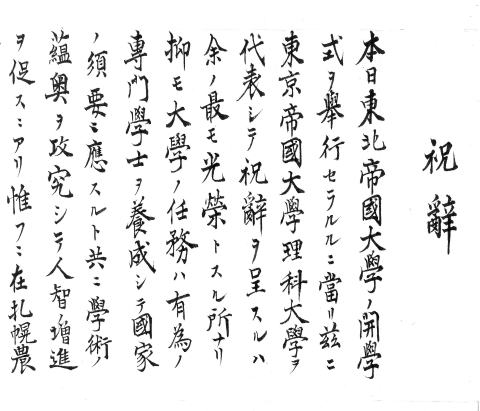 祝辭
本日東北帝國大學ノ開學
式ヲ擧行セラルルニ當リ茲ニ
東京帝國大學理科大學ヲ
代表シテ祝辭ヲ呈スルハ
余ノ最モ光榮トスル所ナリ
抑モ大學ノ任務ハ有為ノ
專門學士ヲ養成シテ國家
ノ須要ニ應スルト共ニ學術ノ
蘊奧ヲ攻究シテ人智ノ增進
ヲ促スニアリ惟フニ在札幌農